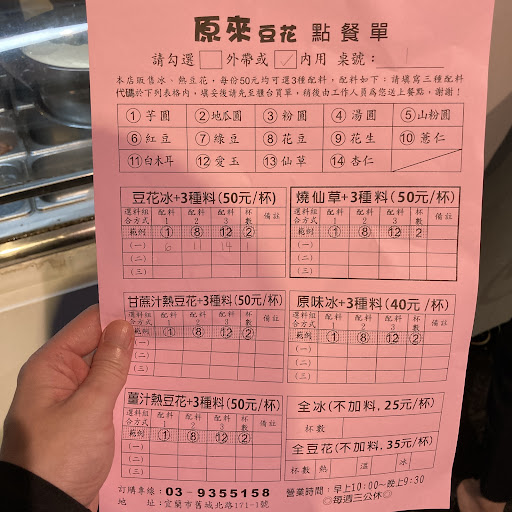 原來豆花 點餐單
請勾選 □ 外帶或 ☑ 內用 桌號: 1
本店販售冰、熱豆花,每份50元均可選3種配料,配料如下:請填寫三種配料
代碼於下列表格內,填妥後請先至櫃台買單,稍後由工作人員為您送上餐點,謝謝!
①芋圓 ②地瓜圓 ③粉圓 ④湯圓 ⑤山粉圓
⑥紅豆 ⑦綠豆 ⑧花豆 ⑨花生 ⑩薏仁
⑪白木耳 ⑫愛玉 ⑬仙草 ⑭杏仁
豆花冰+3種料(50元/杯)
選料組合方式 配料1 配料2 配料3 杯數 備註
範例 ① ⑧ ⑫ ②
(一) 6 11 14
(二)
(三)
燒仙草+3種料(50元/杯)
選料組合方式 配料1 配料2 配料3 杯數 備註
範例 ① ⑧ ⑫ ②
(一)
(二)
(三)
甘蔗汁熱豆花+3種料(50元/杯)
選料組合方式 配料1 配料2 配料3 杯數 備註
範例 ① ⑧ ⑫ ②
(一)
(二)
(三)
原味冰+3種料(40元/杯)
選料組合方式 配料1 配料2 配料3 杯數 備註
範例 ① ⑧ ⑫ ②
(一)
(二)
(三)
薑汁熱豆花+3種料(50元/杯)
選料組合方式 配料1 配料2 配料3 杯數 備註
範例 ① ⑧ ⑫ ②
(一)
(二)
(三)
全冰(不加料,25元/杯)
杯數
全豆花(不加料,35元/杯)
杯數 熱 溫 冰
訂購專線:03-9355158
地 址:宜蘭市舊城北路171-1號
營業時間:早上10:00~晚上9:30
◎每週三公休◎